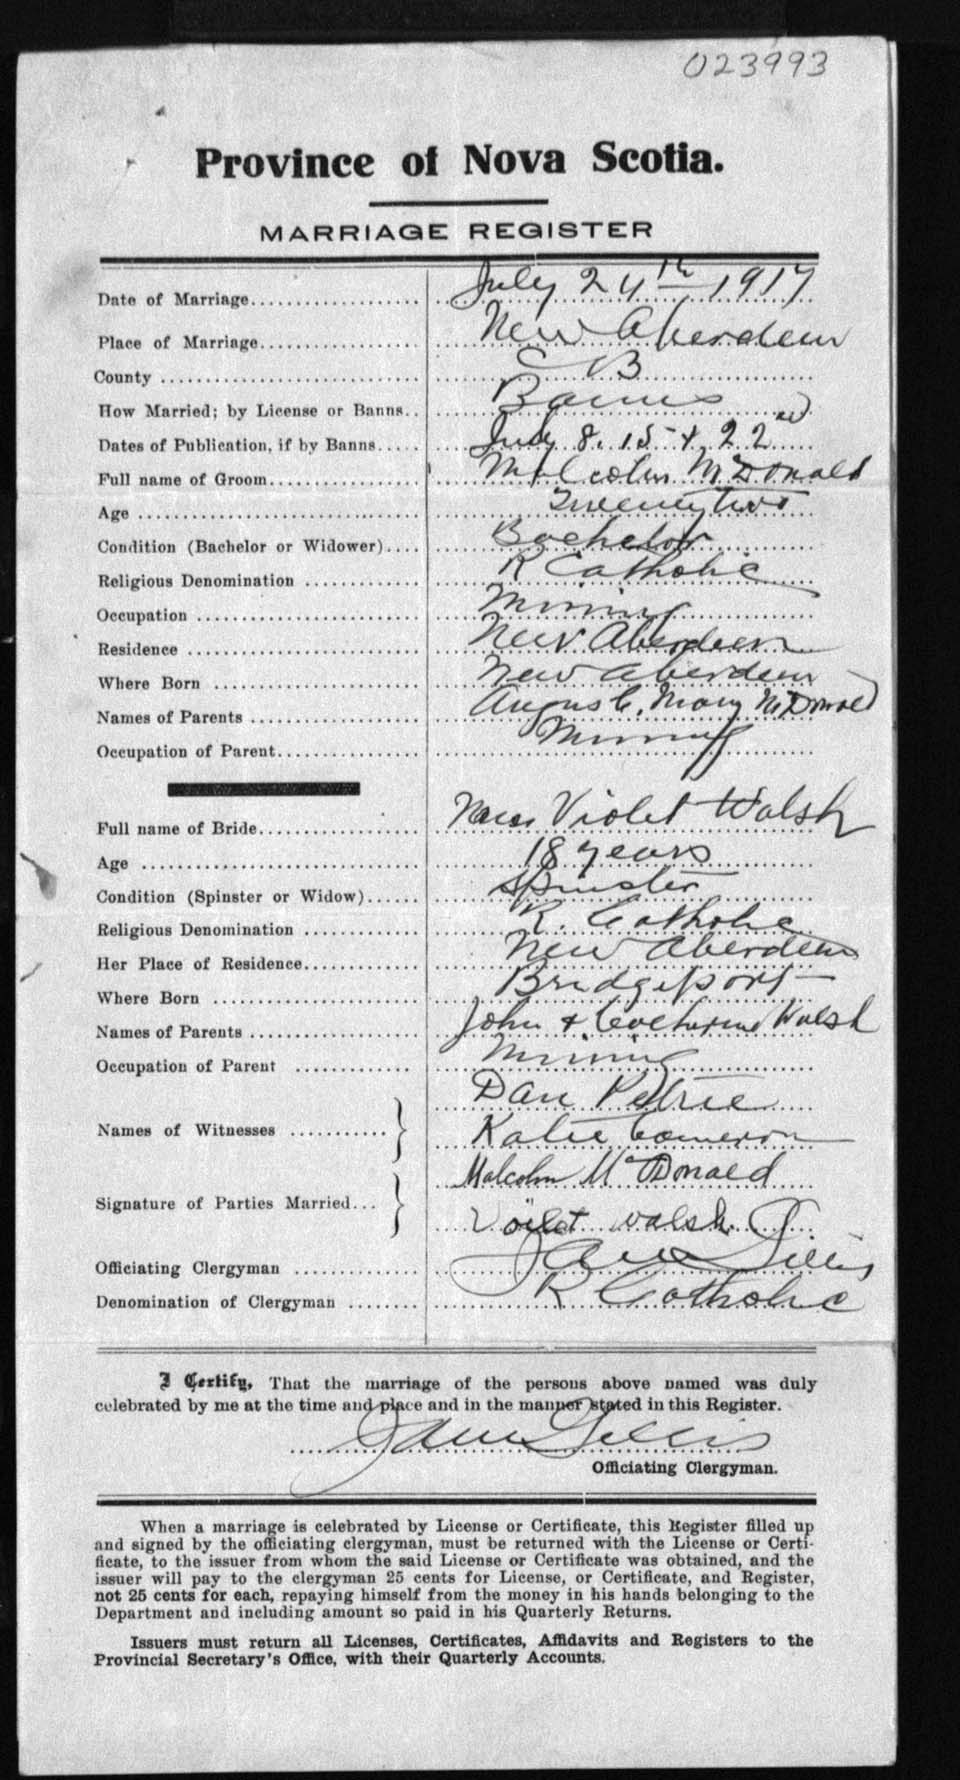 023993
Province of Nova Scotia.
MARRIAGE REGISTER
Date of Marriage July 24th 1917
Place of Marriage New Aberdeen
County CB
How Married; by License or Banns Banns
Dates of Publication, if by Banns July 8, 15 & 22nd
Full name of Groom Malcolm McDonald
Age Twenty two
Condition (Bachelor or Widower) Bachelor
Religious Denomination R Catholic
Occupation Mining
Residence New Aberdeen
Where Born New Aberdeen
Names of Parents Angus C. Mary McDonald
Occupation of Parent Mining
Full name of Bride Violet Walsh
Age 18 years
Condition (Spinster or Widow) Spinster
Religious Denomination R. Catholic
Her Place of Residence New Aberdeen
Where Born Bridgeport
Names of Parents John & Catherine Walsh
Occupation of Parent Mining
Names of Witnesses Dan Petrie
Katie Cameron
Signature of Parties Married Malcolm McDonald
Voilet walsh
Officiating Clergyman Gillis
Denomination of Clergyman R Catholic
I Certify, That the marriage of the persons above named was duly
celebrated by me at the time and place and in the manner stated in this Register.
Gillis
Officiating Clergyman.
When a marriage is celebrated by License or Certificate, this Register filled up
and signed by the officiating clergyman, must be returned with the License or Certi-
ficate, to the issuer from whom the said License or Certificate was obtained, and the
issuer will pay to the clergyman 25 cents for License, or Certificate, and Register,
not 25 cents for each, repaying himself from the money in his hands belonging to the
Department and including amount so paid in his Quarterly Returns.
Issuers must return all Licenses, Certificates, Affidavits and Registers to the
Provincial Secretary's Office, with their Quarterly Accounts.